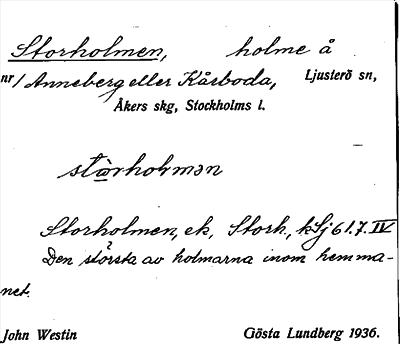 Storholmen, holme å
nr/Anneberg eller Kårboda, Ljusterö sn,
Åkers skg, Stockholms l.
stòrholmən
Storholmen, ek, Storh., kSj 61.7. IV
Den största av holmarna inom hemma-
net.
John Westin Gösta Lundberg 1936.